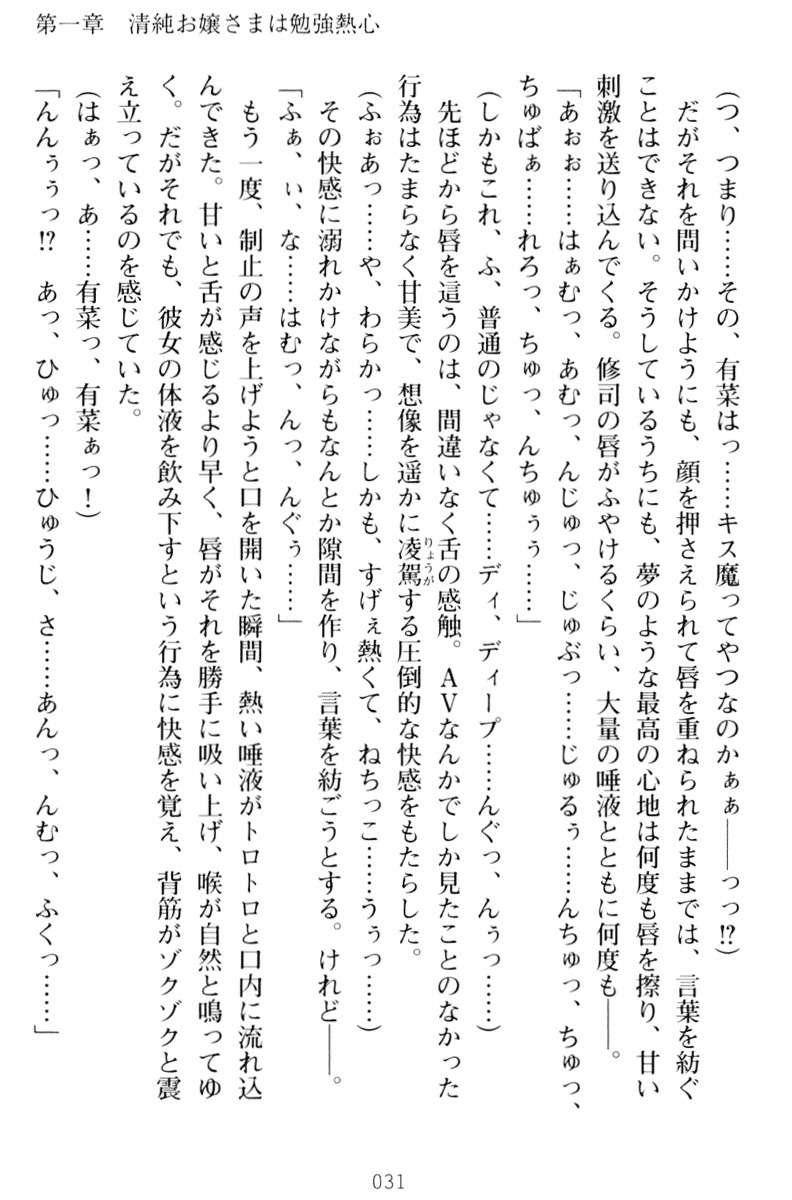 第一章　清純お嬢さまは勉強熱心
(つ、つまり……その、有菜はっ……キス魔ってやつなのかぁぁ――っっ!?)
だがそれを問いかけようにも、顔を押さえられて唇を重ねられたままでは、言葉を紡ぐ
ことはできない。そうしているうちにも、夢のような最高の心地は何度も唇を擦り、甘い
刺激を送り込んでくる。修司の唇がふやけるくらい、大量の唾液とともに何度も――。
「あぉぉ……はぁむっ、あむっ、んじゅっ、じゅぶっ……じゅるぅ……んちゅっ、ちゅっ、
ちゅばぁ……れろっ、ちゅっ、んちゅぅぅ……」
(しかもこれ、ふ、普通のじゃなくて……ディ、ディープ……んぐっ、んぅっ……)
先ほどから唇を這うのは、間違いなく舌の感触。ＡＶなんかでしか見たことのなかった
行為はたまらなく甘美で、想像を遥かに凌駕りょうがする圧倒的な快感をもたらした。
(ふぉあっ……や、わらかっ……しかも、すげぇ熱くて、ねちっこ……うぅっ……)
その快感に溺れかけながらもなんとか隙間を作り、言葉を紡ごうとする。けれど――。
「ふぁ、ぃ、な……はむっ、んっ、んぐぅ……」
もう一度、制止の声を上げようと口を開いた瞬間、熱い唾液がトロトロと口内に流れ込
んできた。甘いと舌が感じるより早く、唇がそれを勝手に吸い上げ、喉が自然と鳴ってゆ
く。だがそれでも、彼女の体液を飲み下すという行為に快感を覚え、背筋がゾクゾクと震
え立っているのを感じていた。
(はぁっ、あ……有菜っ、有菜ぁっ！)
「んんぅぅっ!?　あっ、ひゅっ……ひゅうじ、さ……あんっ、んむっ、ふくっ……」
031